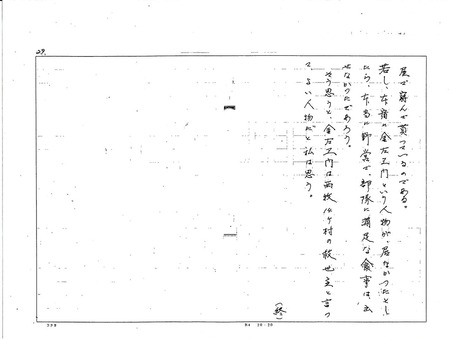 屋が喜んで貰つてゐるのである。
若し、本音の金右エ門という人物が、居なかつたとし
たら、本当に野営で、部隊に満足な食事は、出
せなかつたであろう。
そう思うと、金右エ門は西牧ヶ村の救世主と言つ
て、よい人物だと私は思う。
(終)
29.
B4 20-20